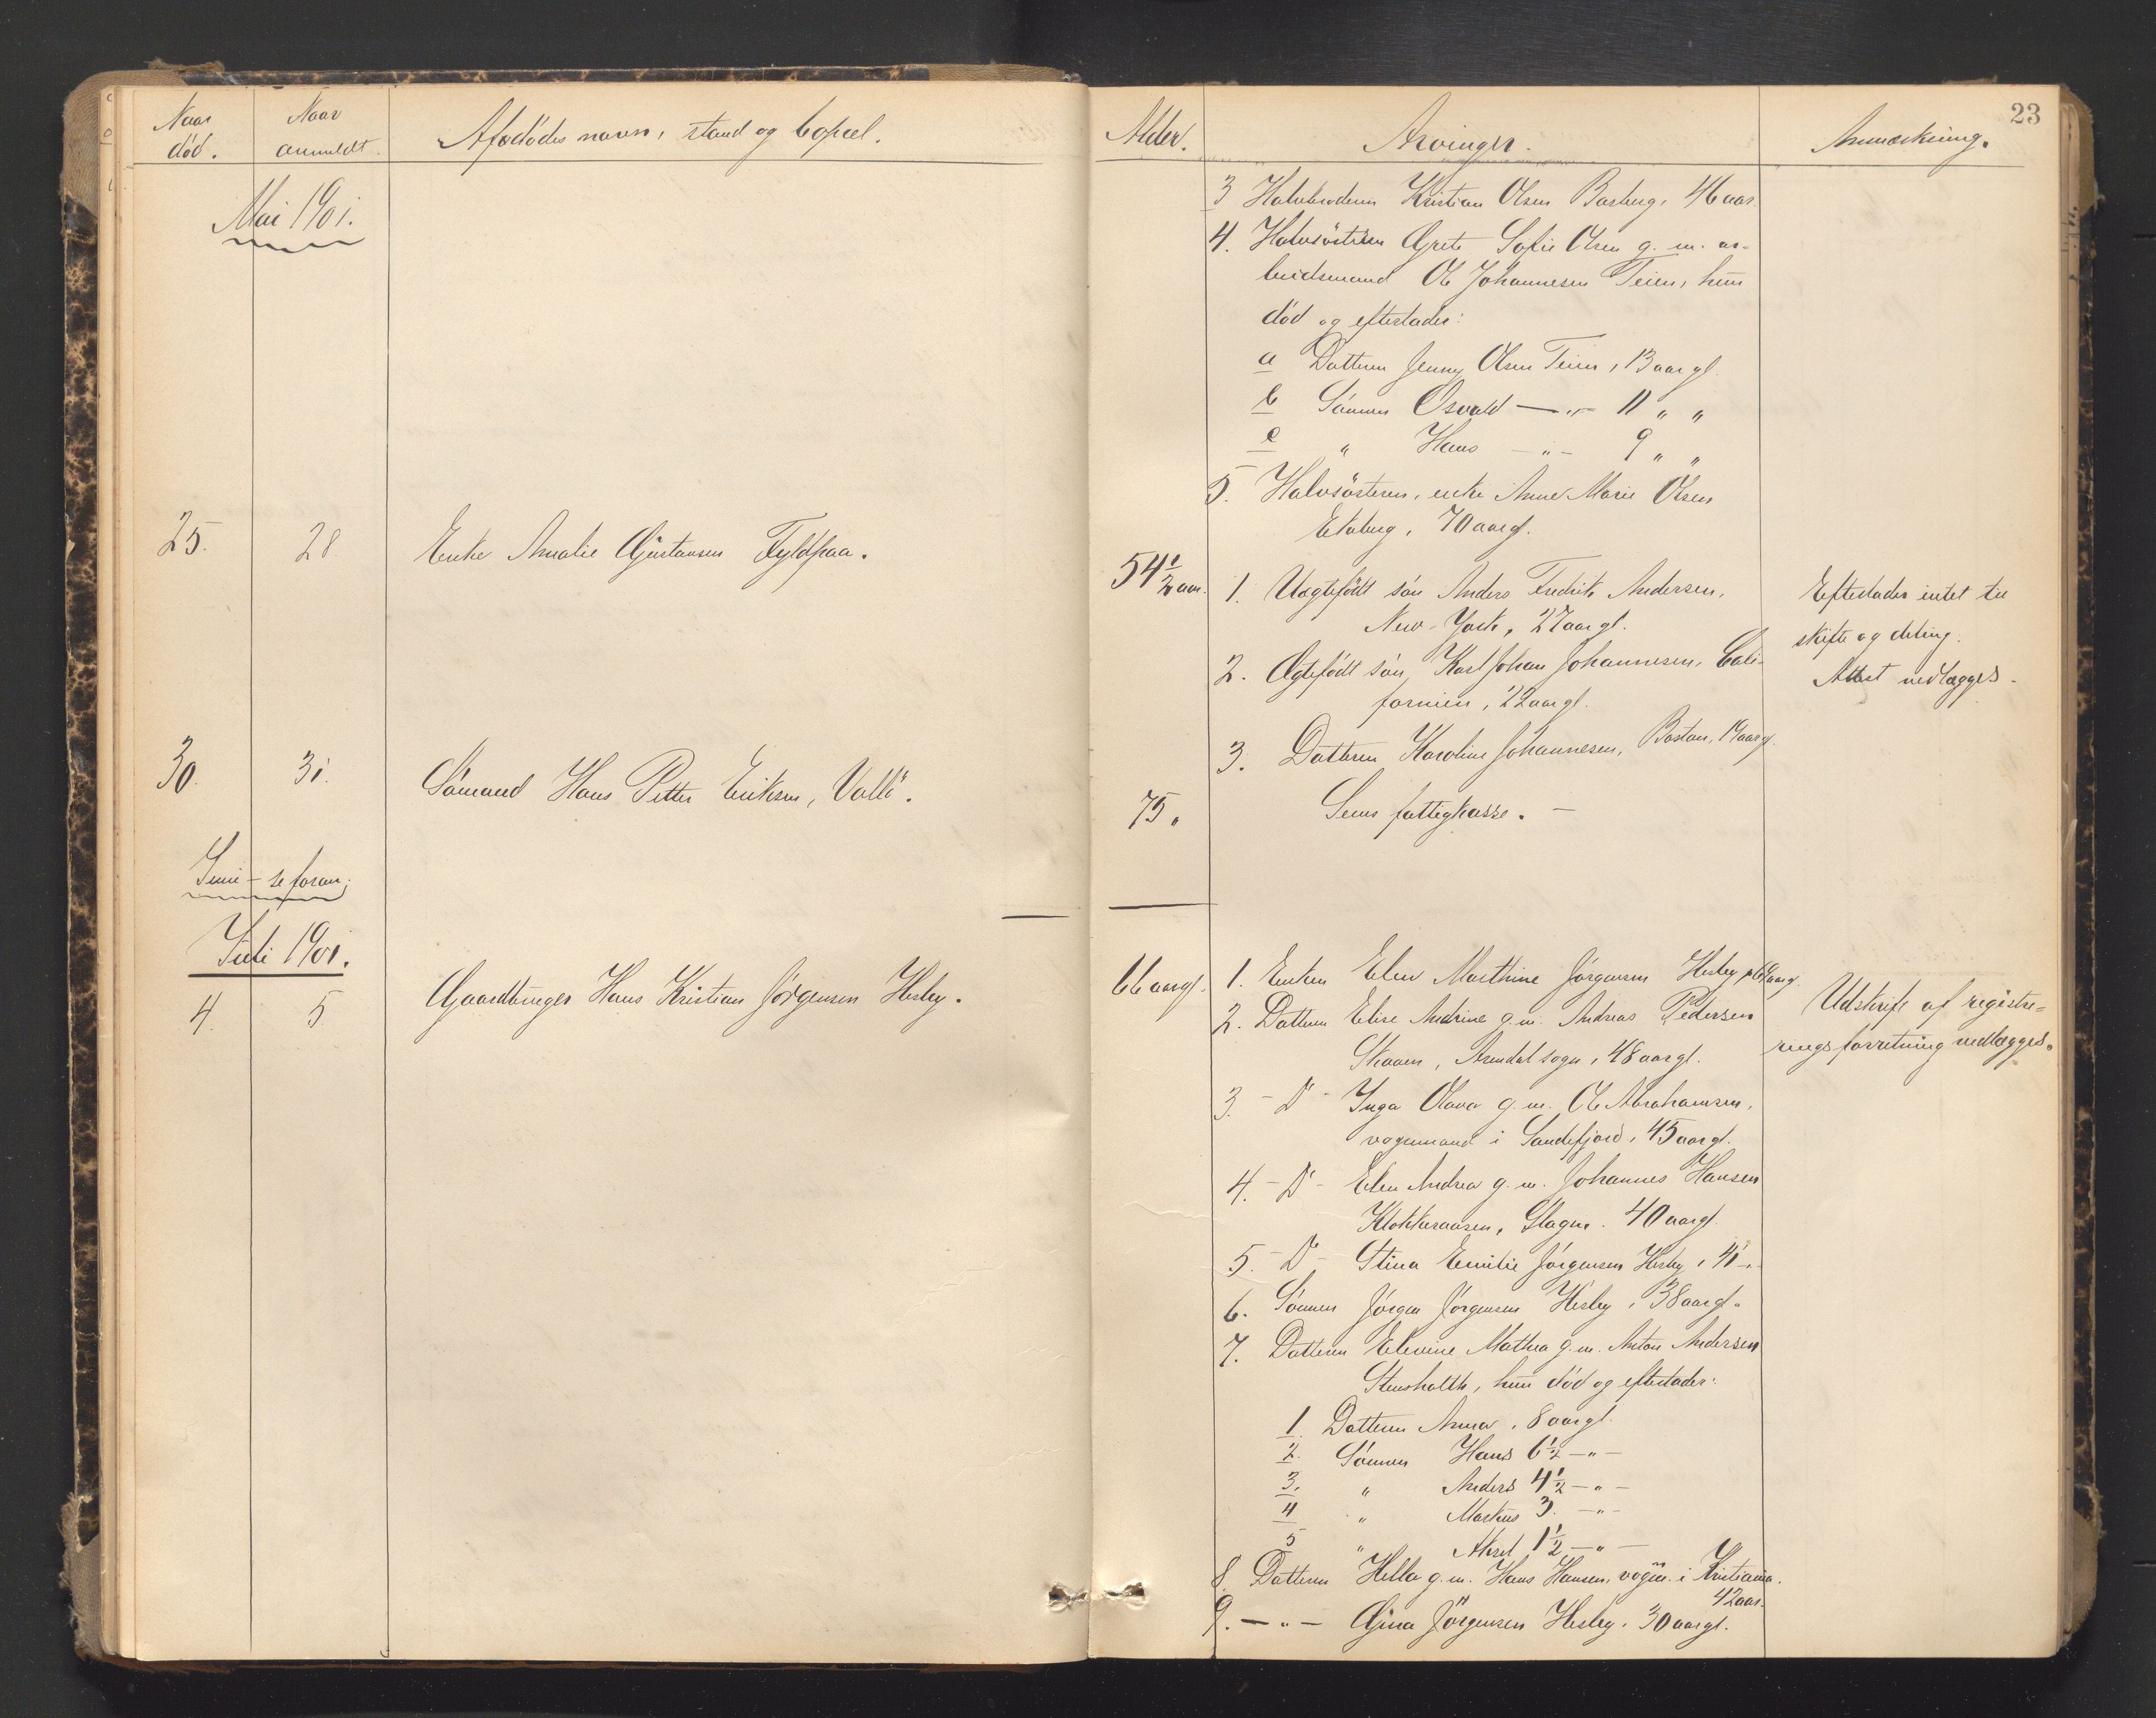 Naar
død.
Naar
anmeldt.
Afdødes navn, stand og bopæl.
Mai 1901.
25.
28.
Enke Amalie Gustavsen Fyldpaa.
30.
31.
Sømand Hans Petter Eriksen, Vallö.
Juni - se foran.
Juli 1901.
4.
5.
Gaardbruger Hans Kristian Jörgensen Hesby.
23
Alder.
Arvinger.
Anmærkning.
3 Halvbroderen Kristian Olsen Basberg, 46 aar.
4. Halvsösteren Grete Sofie Olsen g. m. ar-
beidsmand Ole Johannesen Teien, hun
död og efterlader:
a Datteren Jenny Olsen Teien, 13 aar gl.
b Sönnen Osvald —"— 11 " "
c " Hans —"— 9 " "
5. Halvsösteren, enke Anne Marie Olsen
Ekeberg, 70 aar gl.
54 1/2 aar.
1. Uægtefödt sön Anders Fredrik Andersen,
New-York, 27 aar gl.
2. Ægtefödt sön, Karl Johan Johannesen, Cali-
fornien, 22 aar gl.
3. Datteren Karoline Johannesen, Boston, 19 aar gl.
Efterlader intet til
skifte og deling.
Attest vedlægges.
75 "
Sems fattigkasse. —
66 aar gl.
1. Enken Elen Marthine Jörgensen Hesby, 69 aar gl.
2. Datteren Elise Andrine g. m. Andreas Pedersen
Skaaen, Arendal sogn, 48 aar gl.
3. - D - Inga Olava g. m. Ole Abrahamsen,
vognmand i Sandefjord, 45 aar gl.
4. - D - Elen Andrea g. m. Johannes Hansen
Klokkeraasen, Slagen. 40 aar gl.
5. - D - Stina Emilie Jörgensen Hesby, 41 -"-
6. Sönnen Jörgen Jörgensen Hesby, 38 aar gl.
7. Datteren Elevine Mathea g. m. Anton Andersen
Stensholth, hun död og efterlader:
1. Datteren Anna, 8 aar gl.
2. Sönnen Hans 6 1/2 —"—
3. " Anders 4 1/2 —"—
4 " Markus 3. —"—
5 " Aksel 1 1/2 —"—
8. Datteren Hella g. m. Hans Hansen, vogm. i Kristiania.
42 aar.
9. —"— Gina Jörgensen Hesby. 30 aar gl.
Udskrift af registre-
ringsforretning vedlægges.